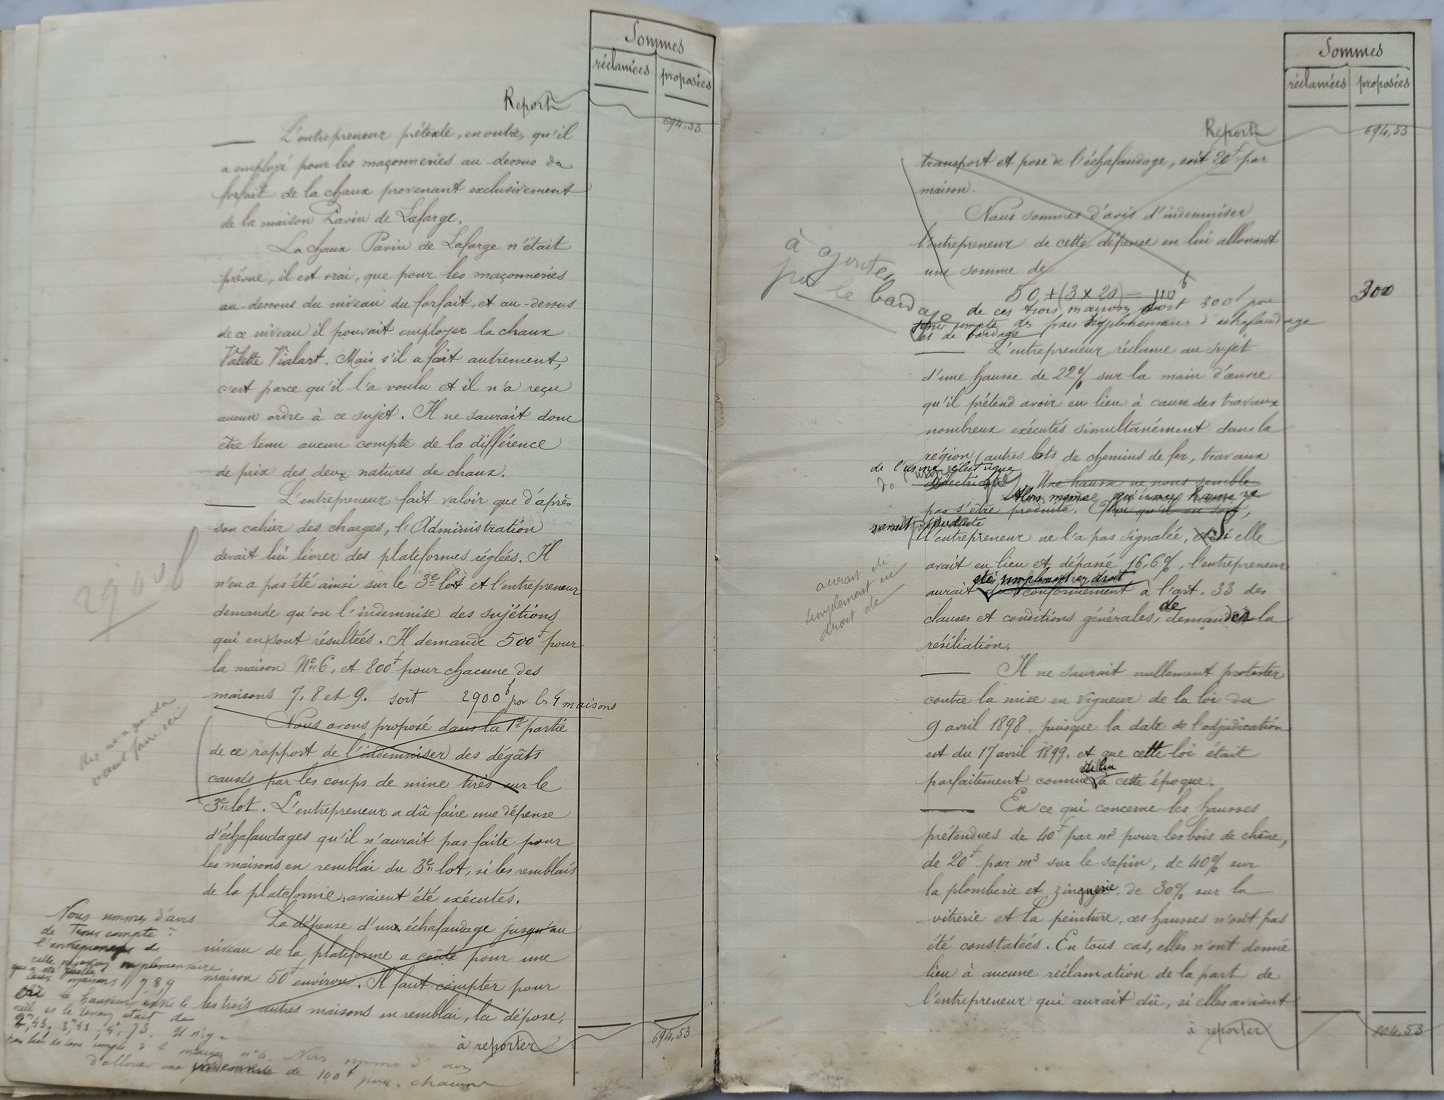 Sommes
réclamées proposées
Report 694.53
L'entrepreneur prétexte, en outre, qu'il
a employé pour les maçonneries au-dessus du
forfait de la chaux provenant exclusivement
de la maison Pavin de Lafarge.
La chaux Pavin de Lafarge n'était
prévue, il est vrai, que pour les maçonneries
au-dessous du niveau du forfait, et au-dessus
de ce niveau il pouvait employer la chaux
Valette Viallart. Mais s'il a fait autrement,
c'est parce qu'il l'a voulu et il n'a reçu
aucun ordre à ce sujet. Il ne saurait donc
être tenu aucun compte de la différence
de prix des deux natures de chaux.
L'entrepreneur fait valoir que d'après
son cahier des charges, l'Administration
devait lui livrer des plateformes réglées. Il
n'en a pas été ainsi sur le 3e lot et l'entrepreneur
demande qu'on l'indemnise des sujétions
qui en sont résultées. Il demande 500f pour
la maison No 6, et 800f pour chacune des
maisons 7, 8 et 9. soit 2900f por les 4 maisons
2900f
Nous avons proposé dans la 1e partie
de ce rapport de l'indemniser des dégâts
causés par les coups de mine tirés sur le
3e lot. L'entrepreneur a dû faire une dépense
d'échafaudages qu'il n'aurait pas faite pour
les maisons en remblai du 3e lot, si les remblais
de la plateforme avaient été exécutés.
La dépense d'un échafaudage jusqu'au
niveau de la plateforme a coûté pour une
maison 50f environ. Il faut compter pour
les trois autres maisons en remblai, la dépose,
à reporter 694,53
Nous sommes d'avis
de tenir compte à
l'entrepreneur de
cette
maisons 7, 8 & 9
où la hauteur entre le
et le terrain était de
2m,43, 3m,41, 4m,73. Il n'y a
pas lieu de tenir compte à la maison no 6. Nous sommes d'avis
d'allouer une de 100f pour chacune
Sommes
réclamées proposées
Report 694,53
transport et pose de l'échafaudage, soit 20f par
maison.
Nous sommes d'avis d'indemniser
l'entrepreneur de cette dépense en lui allouant
une somme de
50 + (3 x 20) = 110f
à ajouter
par le bardage de ces trois maisons soit 300f pour
300
tenir compte des frais supplémentaires d'échafaudage
et de bardage
L'entrepreneur réclame au sujet
d'une hausse de 22% sur la main d'œuvre
qu'il prétend avoir eu lieu à cause des travaux
nombreux exécutés simultanément dans la
région (autres lots de chemins de fer, travaux
de l'usine électrique
Une hausse ne nous semble
Alors même qu'une hausse se
pas s'être produite.
serait produite
l'entrepreneur ne l'a pas signalée, Si elle
avait eu lieu et dépassé 16,6%, l'entrepreneur
été simplement en droit
aurait conformément à l'art. 33 des
clauses et conditions générales, de demander la
résiliation.
aurait été
simplement en
droit de
Il ne saurait nullement protester
contre la mise en vigueur de la loi du
9 avril 1898, puisque la date de l'adjudication
est du 17 avril 1899, et que cette loi était
parfaitement connue de lui à cette époque.
En ce qui concerne les hausses
prétendues de 40f par m3 pour les bois de chêne,
de 20f par m3 sur le sapin, de 40% sur
la plomberie et zinguerie de 30% sur la
vitrerie et la peinture, ces hausses n'ont pas
été constatées. En tous cas, elles n'ont donné
lieu à aucune réclamation de la part de
l'entrepreneur qui aurait dû, si elles avaient
à reporter